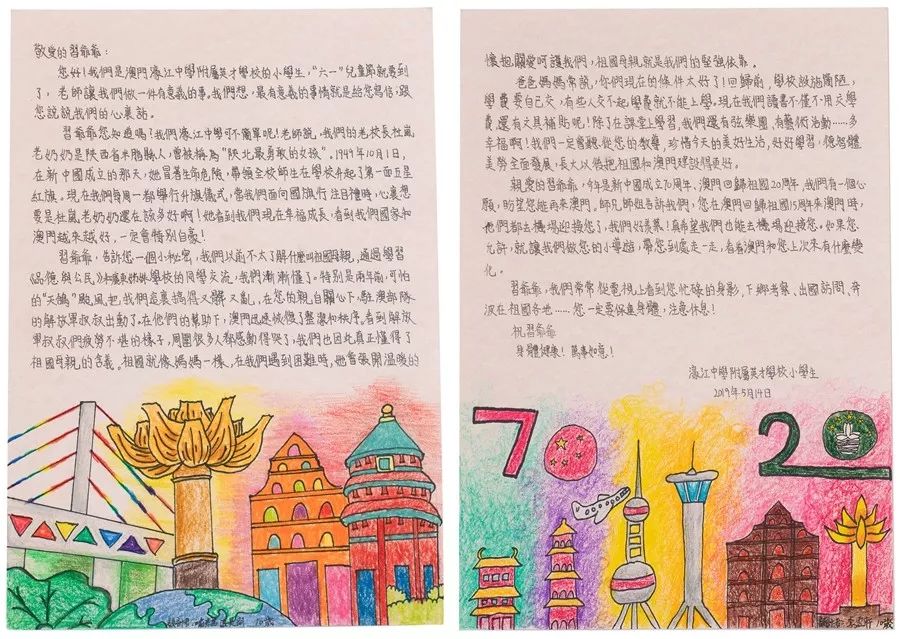 敬愛的習爺爺：
您好！我們是澳門濠江中學附屬英才學校的小學生，“六一”兒童節就要到
了，老師讓我們做一件有意義的事。我們想，最有意義的事情就是給您寫信，跟
您說說我們的心裏話。
習爺爺您知道嗎？我們濠江中學可不簡單呢！老師說，我們的老校長杜嵐
老奶奶是陝西省米脂縣人，曾被稱為“陝北最勇敢的女孩”。1949年10月1日，
在新中國成立的那天，她冒著生命危險，帶領全校師生在學校升起了第一面五星
紅旗。現在我們每周一都舉行升旗儀式，當我們面向國旗行注目禮時，心裏想
要是杜嵐老奶奶還在該多好啊！她看到我們現在幸福成長，看到我們國家和
澳門越來越好，一定會特別自豪！
習爺爺，告訴您一個小秘密，我們以前不太了解什麼叫祖國母親，通過學習
《品德與公民》和 學校的同學交流，我們漸漸懂了。特別是兩年前，可怕
的“天鴿”颱風把我們這裏搞得又髒又亂，在您的親自關心下，駐澳部隊
的解放軍叔叔出動了。在他們的幫助下，澳門迅速恢復了整潔和秩序。看到解放
軍叔叔們疲勞不堪的樣子，周圍很多人都感動得哭了，我們也因此真正懂得了
祖國母親的含義。祖國就像媽媽一樣，在我們遇到困難時，她會張開溫暖的
10歲
懷抱關愛呵護我們，祖國母親就是我們的堅強依靠。
爸爸媽媽常說，你們現在的條件太好了！回歸前，學校設施簡陋，
學費要自己交，有些人交不起學費就不能上學。現在我們讀書不僅不用交學
費，還有文具補貼呢！除了在課堂上學習，我們還有弦樂團，有藝術活動……多
幸福啊！我們一定會聽從您的教導，珍惜今天的美好生活，好好學習，德智體
美勞全面發展，長大以後把祖國和澳門建設得更好。
親愛的習爺爺，今年是新中國成立70周年、澳門回歸祖國20周年，我們有一個心
願，盼望您能再來澳門。師兄師姐告訴我們，您在澳門回歸祖國15周年來澳門時，
他們都去機場迎接您了，我們好羨慕！真希望我們也能去機場迎接您。如果您
允許，就讓我們做您的小導遊，帶您到處走一走，看看澳門和您上次來有什麼變
化。
習爺爺，我們常常從電視上看到您忙碌的身影，下鄉考察、出國訪問、奔
波在祖國各地……您一定要保重身體，注意休息！
祝習爺爺
身體健康！萬事如意！
濠江中學附屬英才學校小學生
2019年5月14日
70
20
10歲